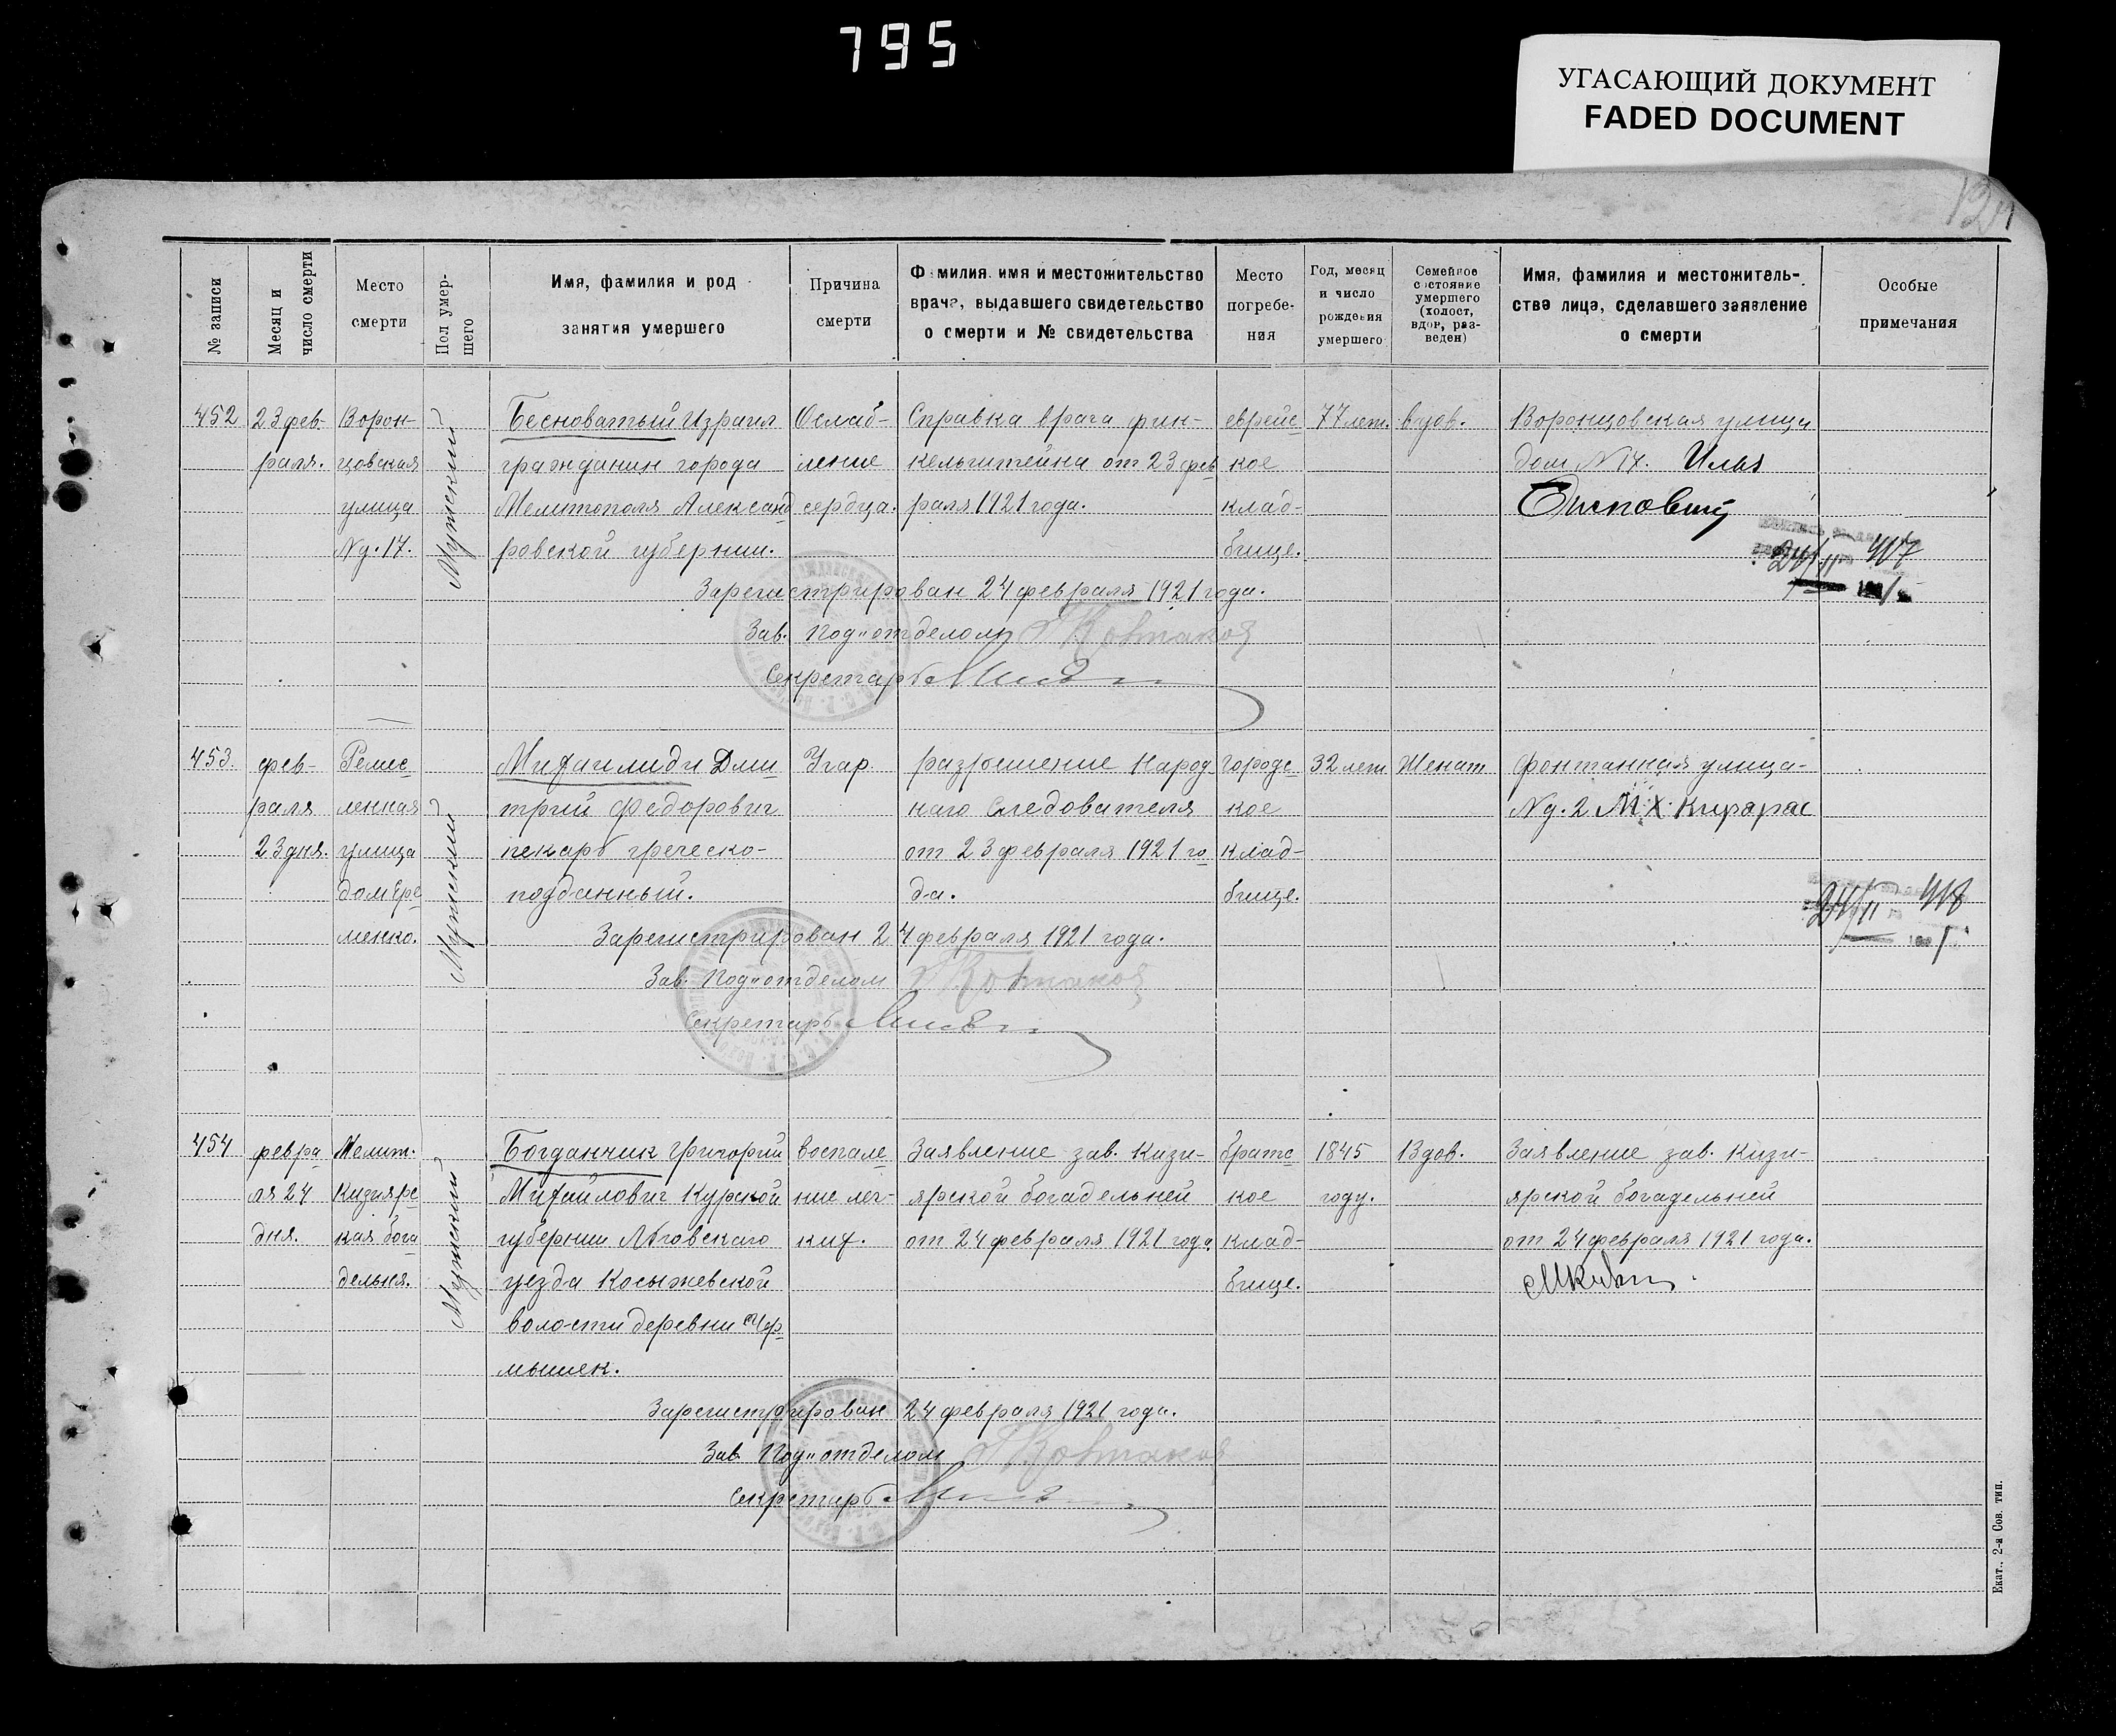 795
УГАСАЮЩИЙ ДОКУМЕНТ
FADED DOCUMENT
№ записи
Месяц и
число смерти
Место
смерти
Пол умер-
шего
Имя, фамилия и род
занятия умершего
Причина
смерти
Фамилия, имя и местожительство
врача, выдавшего свидетельство
о смерти и № свидетельства
Место
погребе-
ния
Год, месяц
и число
рождения
умершего
Семейное
состояние
умершего
(холост,
вдов, раз-
веден)
Имя, фамилия и местожитель-
ства лица, сделавшего заявление
о смерти
Особые
примечания
452
23 фев-
раля.
Ворон-
цовская
улица
№д. 17.
Мужской
Бесноватый Израил
гражданин города
Мелитополя Александ
ровской губернии.
Ослаб-
ление
сердца.
Справка врача фин-
кельштейна от 23 фев
раля 1921 года.
еврейс
кое
клад-
бище.
77 лет.
вдов.
Воронцовская улица
дом №17. Илья
24/II 417
Зарегистрирован 24 февраля 1921 года.
Зав. Под"отделом
Секретарь
453
фев-
раля
23 дня.
Ремес
ленная
улица
дом Ере
менко.
Мужский
Михаилиди Дми
трий Федорович
пекарь греческо-
подданный.
Угар.
разрешение Народ
наго Следователя
от 23 февраля 1921 го
да.
Городс
кое
клад-
бище.
32 лет
Женат
Фонтанная улица-
№д. 2 М Х
24/II 418
Зарегистрирован 24 февраля 1921 года.
Зав. Под"отделом
Секретарь
454
февра
ля 24
дня.
Мелит.
Кизиярс
кая бога
дельня.
Мужский
Богданчик Григорий
Михайлович Курской
губернии Льговскаго
уезда Косыжевской
волости деревни
мышек.
воспале
ние лег-
ких.
Заявление зав. Кизи-
ярской богадельней
от 24 февраля 1921 года
братс
кое
клад-
бище.
1845
году.
Вдов.
Заявление зав. Кизи-
ярской богадельней
от 24 февраля 1921 года.
Зарегистрирован 24 февраля 1921 года.
Зав. Под"отделом
Секретарь
Екат., 2-я Сов. тип.